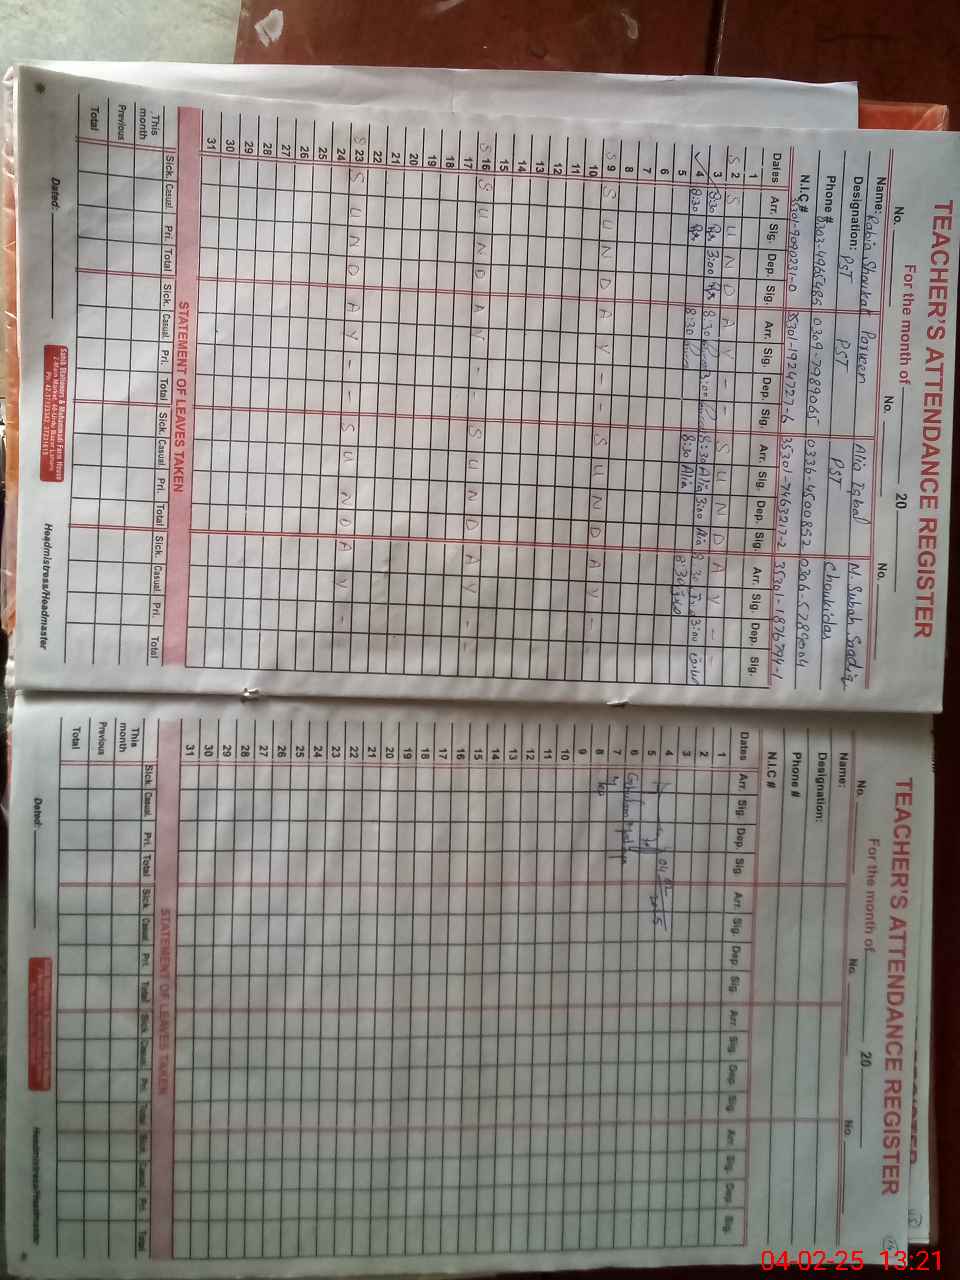 TEACHER'S ATTENDANCE REGISTER
For the month of 20
No. No. No.
Name: Rabia Shoukat Parveen Alia Iqbal N. Subah Sadiq
Designation: PST PST PST Choukidar
Phone # 0303-4965486 0309-7989065 0336-4500852 0306-5789004
N.I.C # 35301-9090231-0 35301-1924727-6 35301-7463217-2 35301-1876794-1
Dates Arr. Sig. Dep. Sig. Arr. Sig. Dep. Sig. Arr. Sig. Dep. Sig. Arr. Sig. Dep. Sig.
1
S 2 S U N D A Y - - S U N D A Y - -
3 8:30 3:00 8:30 3:00 8:30 Alia 3:00 Alia 8:30 3:00
4 8:30 8:30 8:30 Alia 8:30
5
6
7
8
S 9 S U N D A Y - - S U N D A Y -
10
11
12
13
14
15
S 16 S U N D A Y - - S U N D A Y - -
17
18
19
20
21
22
S 23 S U N D A Y - - S U N D A Y -
24
25
26
27
28
29
30
31
STATEMENT OF LEAVES TAKEN
Sick. Casual Pri. Total Sick. Casual. Pri. Total Sick. Casual Pri. Total Sick. Casual Pri. Total
This month
Previous
Total
Dated:
Headmistress/Headmaster
TEACHER'S ATTENDANCE REGISTER
For the month of 20
No. No. No.
Name:
Designation:
Phone #
N.I.C #
Dates Arr. Sig. Dep. Sig. Arr. Sig. Dep. Sig. Arr. Sig. Dep. Sig. Arr. Sig. Dep. Sig.
1
2
3
4
5 04 2025
6
7
8
9
10
11
12
13
14
15
16
17
18
19
20
21
22
23
24
25
26
27
28
29
30
31
STATEMENT OF LEAVES TAKEN
Sick. Casual. Pri. Total Sick. Casual. Pri. Total Sick. Casual. Pri. Total Sick. Casual. Pri. Total
This month
Previous
Total
Dated:
Headmistress/Headmaster
04-02-25 13:21